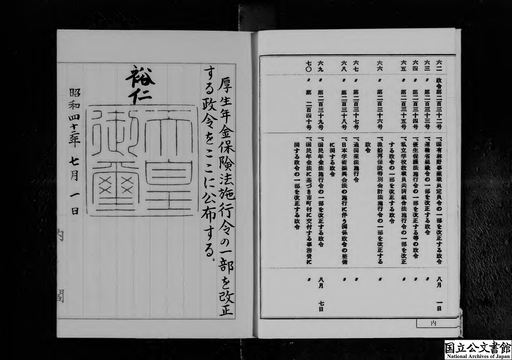 六二　政令第二百三十一号　国有林野事業職員定員令の一部を改正する政令　八月　一日
六三　〃　第二百三十二号　運輸省組織令の一部を改正する政令　〃
六四　〃　第二百三十三号
六五　〃　第二百三十五号　私立学校教職員共済組合法施行令の一部を改正
する政令の一部を改正する政令　〃
六六　〃　第二百三十六号　漁船再保険特別会計法施行令の一部を改正する
政令　〃
六七　〃　第二百三十七号　造園業法施行令　〃
六八　〃　第二百三十八号　日本学術振興会法の施行に伴う関係政令の整備
に関する政令　〃
六九　〃　第二百三十九号　国民年金法施行令の一部を改正する政令　八月　七日
七〇　〃　第二百四十号　国民年金法に基づき市町村に交付する事務費に
関する政令の一部を改正する政令　〃
内
厚生年金保険法施行令の一部を改正
する政令をここに公布する。
裕仁
天皇
御璽
昭和四十二年　七月　一日
内　閣
国立公文書館
National Archives of Japan